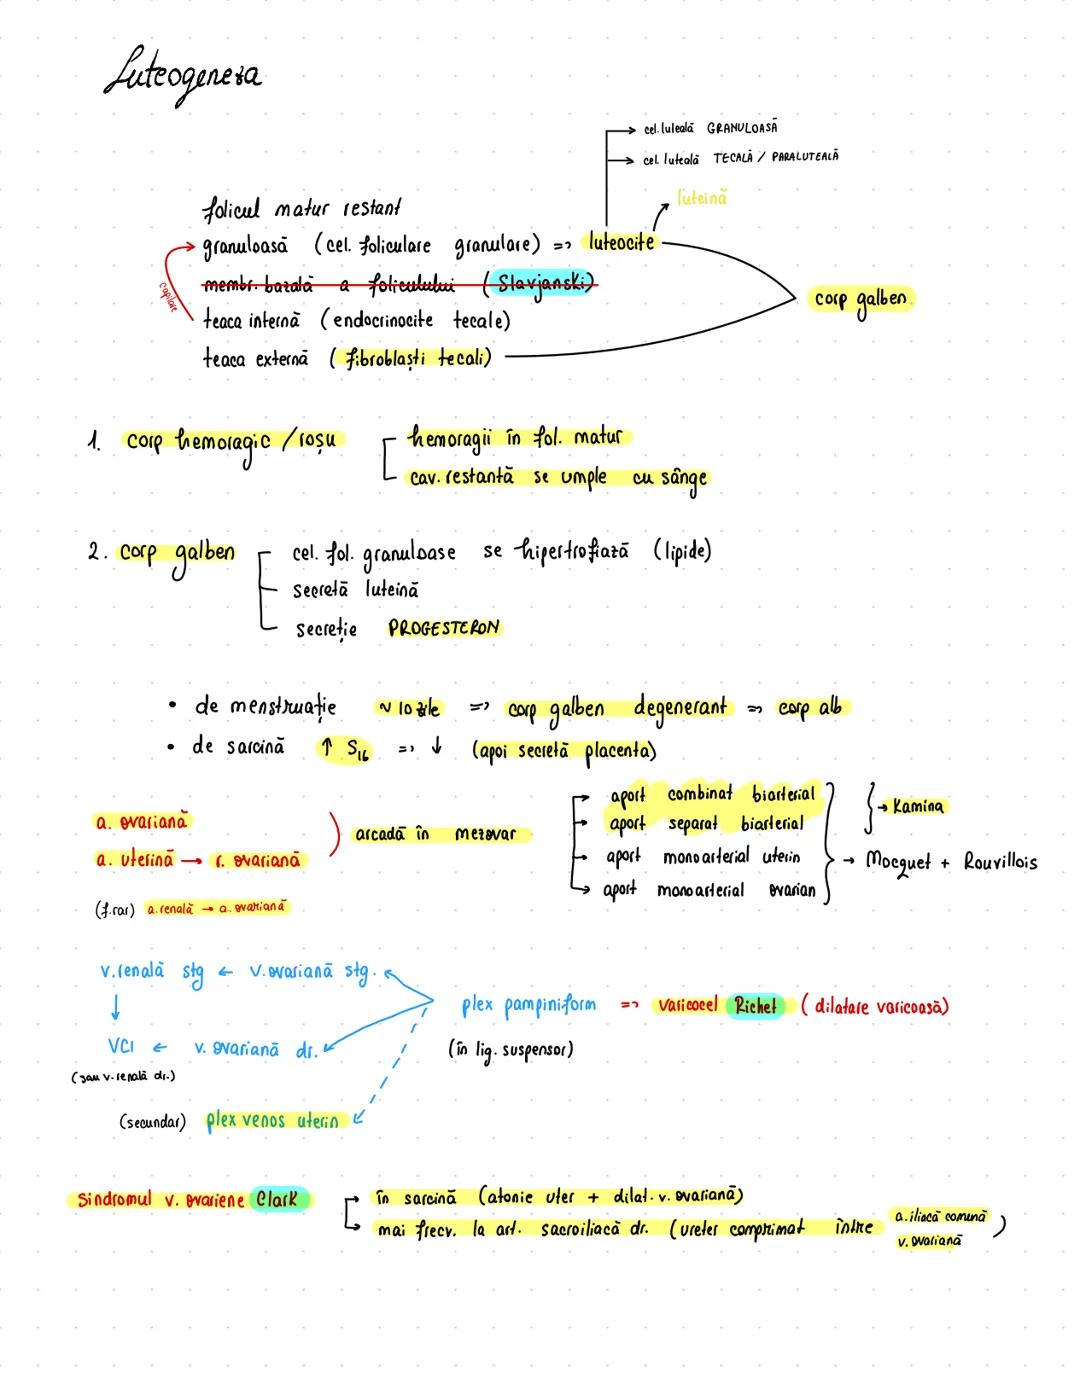 Luteogeneza
→ cel. luteală GRANULOASĂ
→ cel. luteală TECALĂ / PARALUTEALĂ
luteină
folicul matur restant
granuloasă (cel. foliculare granulare) => luteocite
membr. bazală a foliculului (Slavjanski)
capilare
corp galben
teaca internă (endocrinocite tecale)
teaca externă (fibroblaști tecali)
1. corp hemoragic / roșu
hemoragii în fol. matur
cav. restantă se umple cu sânge
2. corp galben
cel. fol. granuloase se hipertrofiază (lipide)
secretă luteină
secreție PROGESTERON
• de menstruație ~ 10 zile => corp galben degenerant => corp alb
• de sarcină ↑ S16 => ↓ (apoi secretă placenta)
a. ovariană
a. uterină → r. ovariană
) arcadă în mezovar
(f. rar) a. renală → a. ovariană
aport combinat biarterial
aport separat biarterial
aport monoarterial uterin
aport monoarterial ovarian
} → Kamina
} → Mocquet + Rouvillois
v. renală stg ← v. ovariană stg.
↓
VCI ← v. ovariană dr.
(sau v. renală dr.)
(secundar) plex venos uterin
plex pampiniform => varicocel Richet (dilatare varicoasă)
(în lig. suspensor)
Sindromul v. ovariene Clark
în sarcină (atonie uter + dilat. v. ovariană)
mai frecv. la art. sacroiliacă dr. (ureter comprimat între a. iliacă comună
v. ovariană )